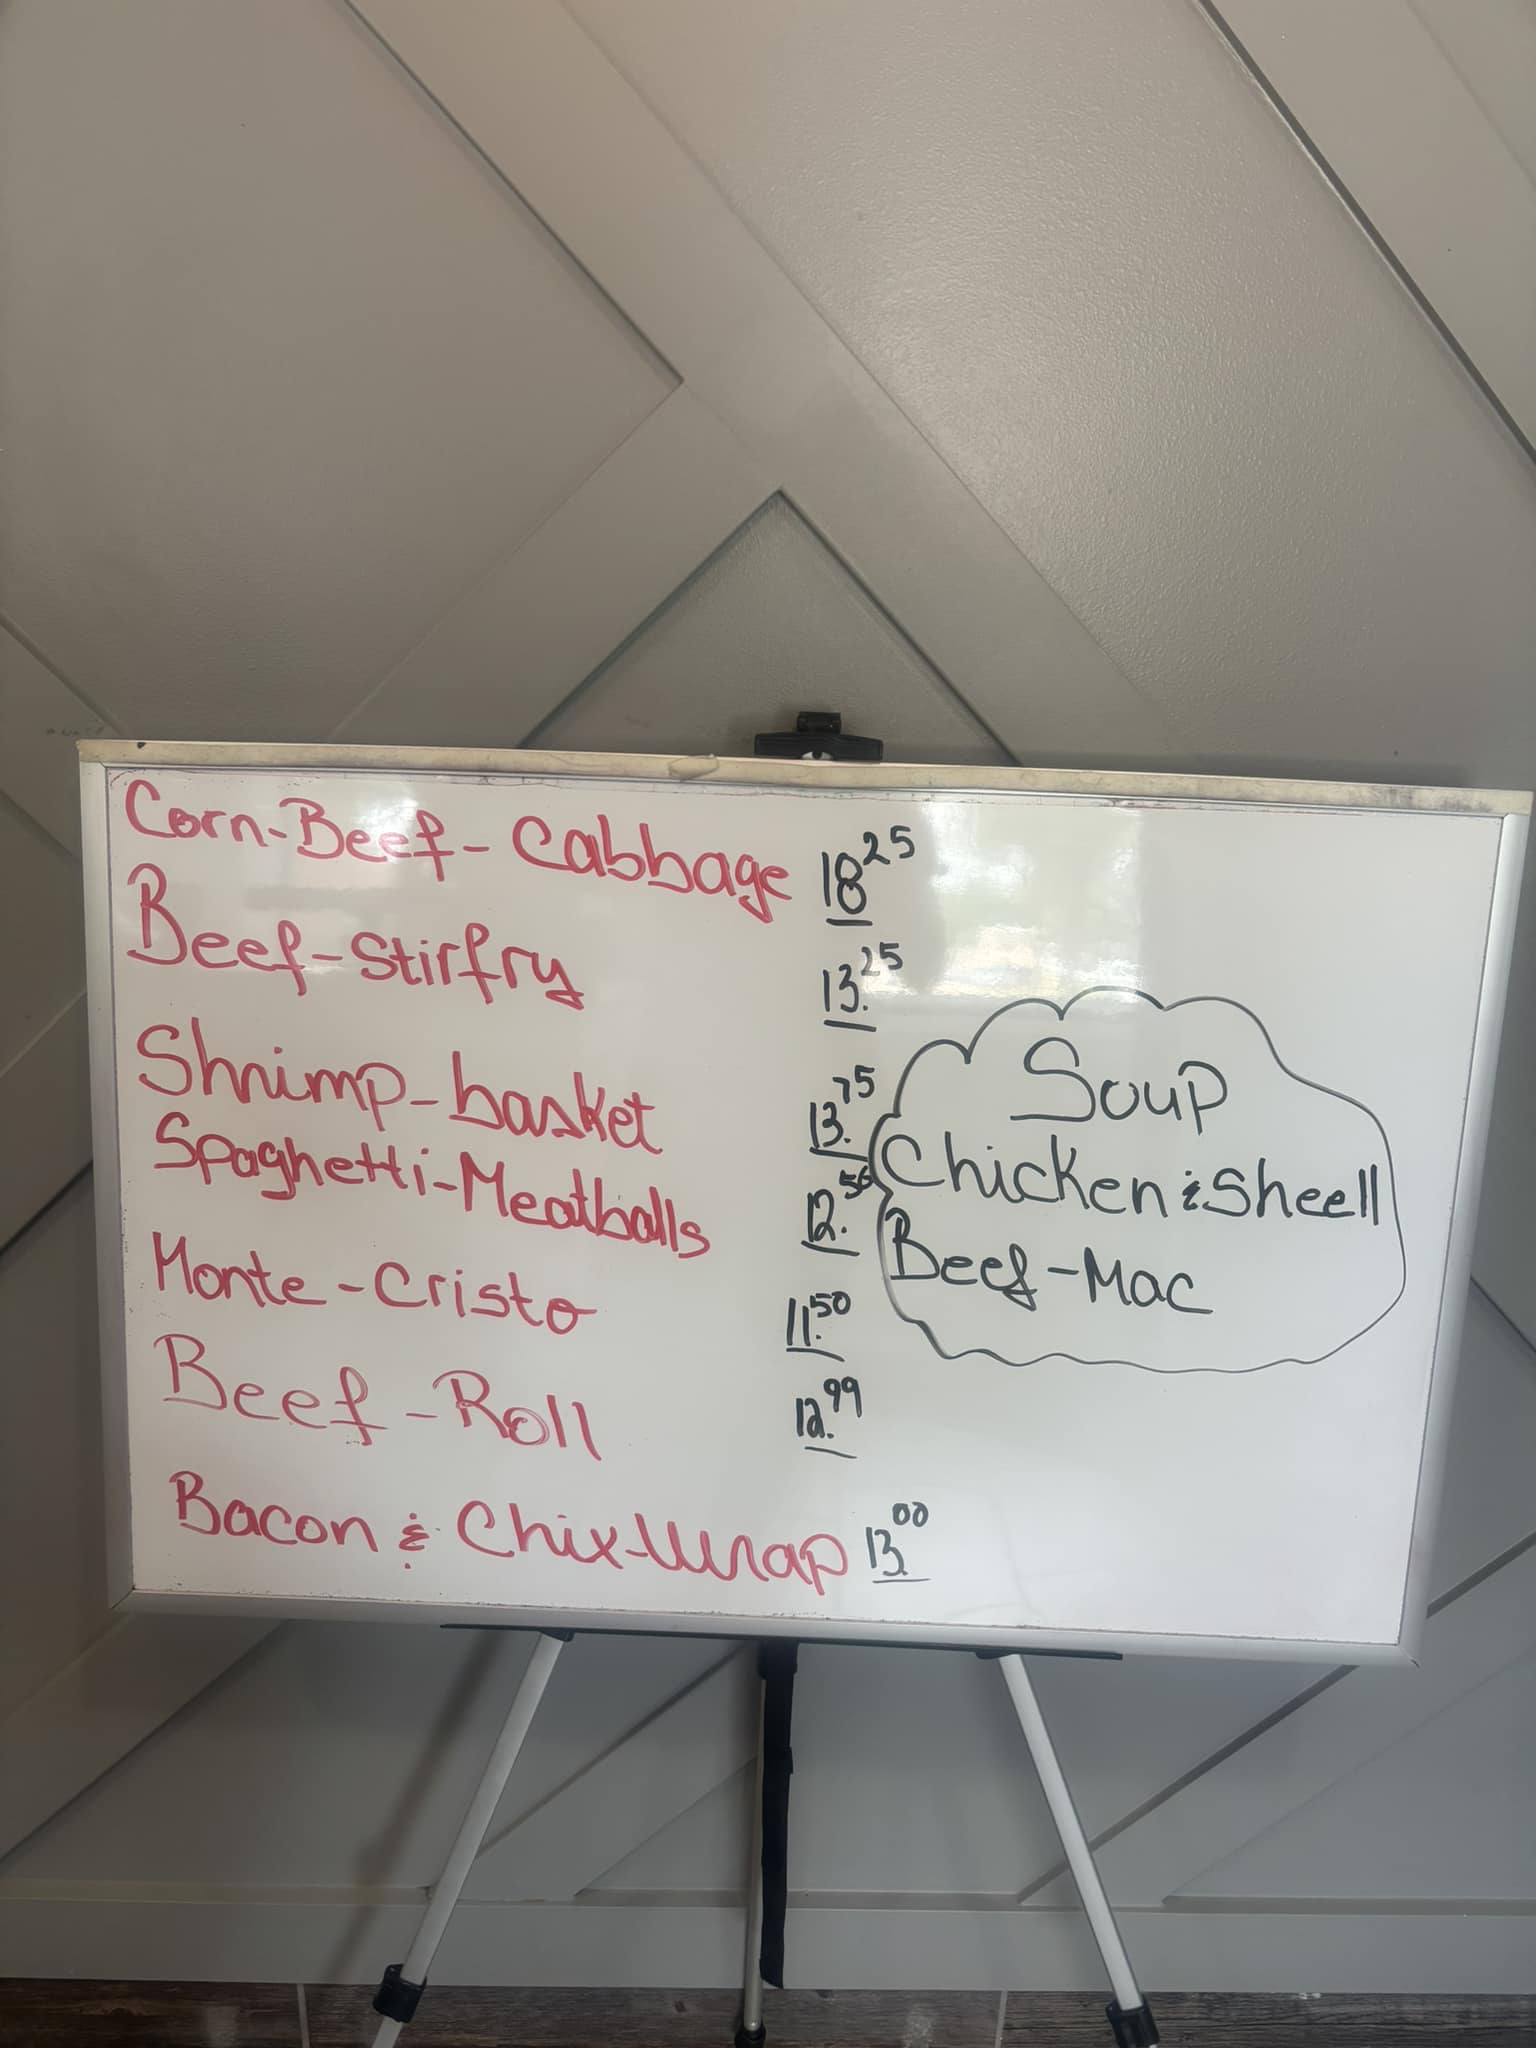 Corn-Beef-Cabbage 18 25
Beef-Stirfry 13.25
Shrimp-basket 13.75
Spaghetti-Meatballs 12.50
Monte-Cristo 11.50
Beef-Roll 12.99
Bacon & Chix-Wrap 13.00
Soup
Chicken & Sheell
Beef-Mac